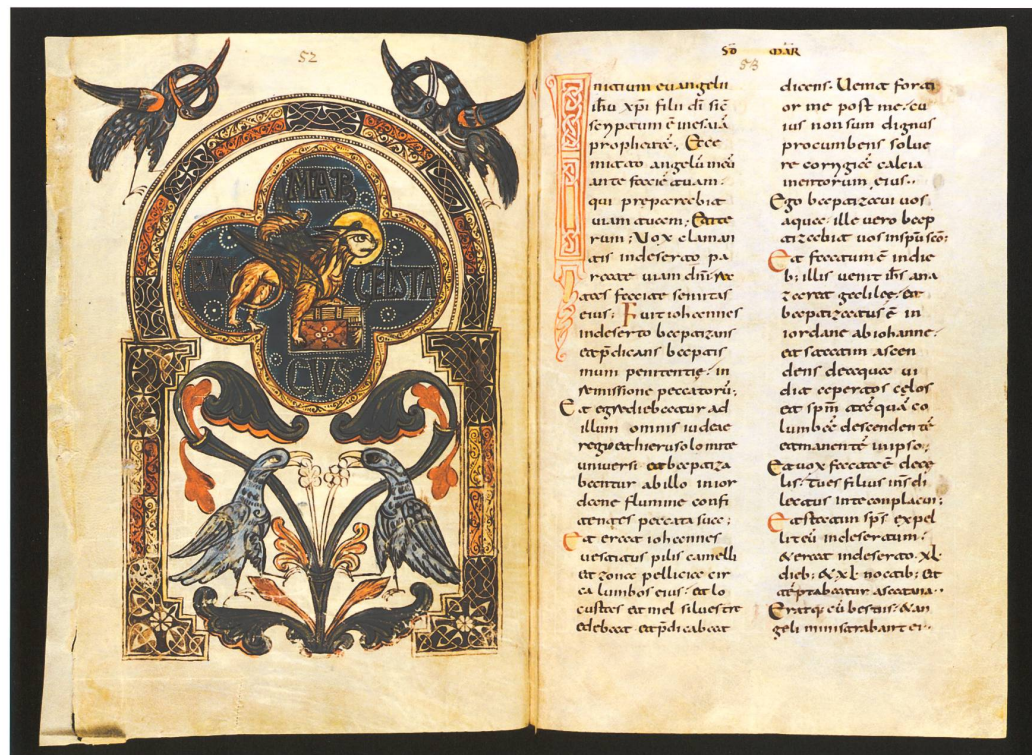 52
MAR
GELSTA
CVS
MAR
53
Initium euangelii
ihu xpi filii di sic
scriptum ē inesaia
propheta. Ecce
mitto angelū meū
ante faciē tuam.
qui preparabit
uiam tuam;
rum; Uox claman
tis indeserto pa
rate uiam dñi re
ctas facite semitas
eius. Fuit iohannes
indeserto baptizans
et p̄dicans baptis
mum penitentię in
remissione peccatorū;
Et egrediebatur ad
illum omnis iudeae
regio et hierusolomite
uniuersi et baptiza
bantur abillo inior
dane flumine confi
tentes peccata sua;
Et erat iohannes
uestitus pilis camelli
et zona pellicia cir
ca lumbos eius. et lo
custas et mel siluestre
edebat et p̄dicabat
dicens. Uenit forti
or me post me. cu
ius non sum dignus
procumbens solue
re corrigia calcia
mentorum eius.
Ego baptizaui uos
aqua. ille uero bap
tizabit uos inspu sco;
Et factum ē indie
b; illis uenit ihs ana
zaret galilee. et
baptizatus ē in
iordane abiohanne.
et statim ascen
dens deaqua ui
dit apertos celos
et spm tāquā co
lumbā descendentē
et manentē inipso;
Et uox facta ē dece
lis. tu es filius ms di
lectus inte complacui;
Et statim sps expel
lit eū indesertum.
& erat indeserto. xl
dieb; & xl noctib; et
tēptabatur asatana.
Eratq; cū bestiis. & an
geli ministrabant ei.